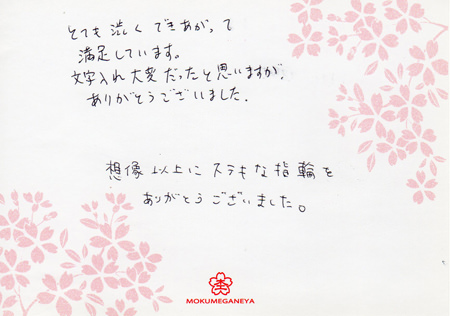 とても渋くできあがって
満足しています。
文字入れ大変だったと思いますが、
ありがとうございました.
想像以上にステキな指輪を
ありがとうございました。
MOKUMEGANEYA